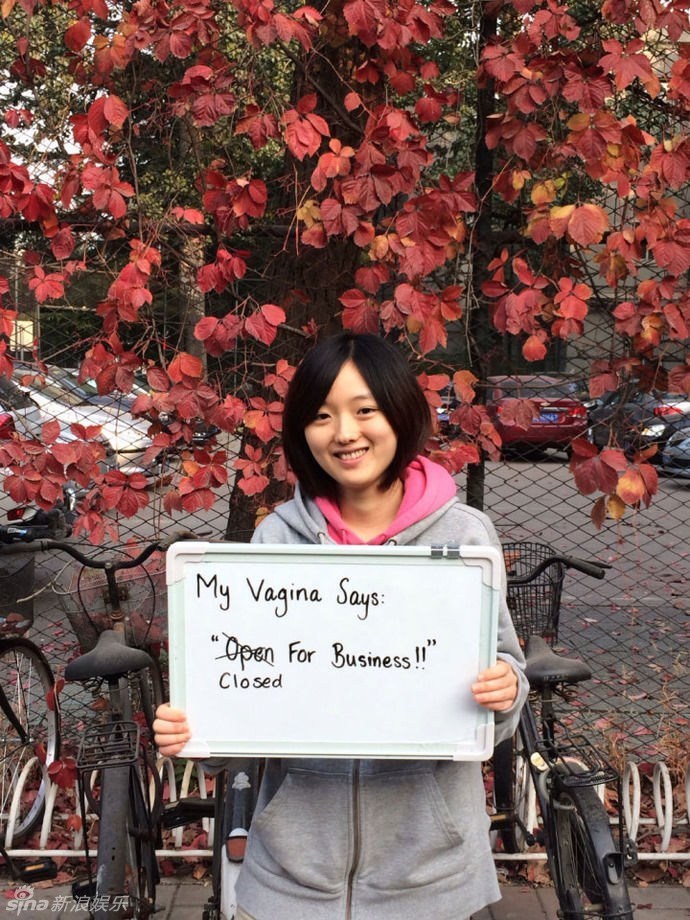 My Vagina Says:
"Open For Business!!"
Closed
sina新浪娱乐